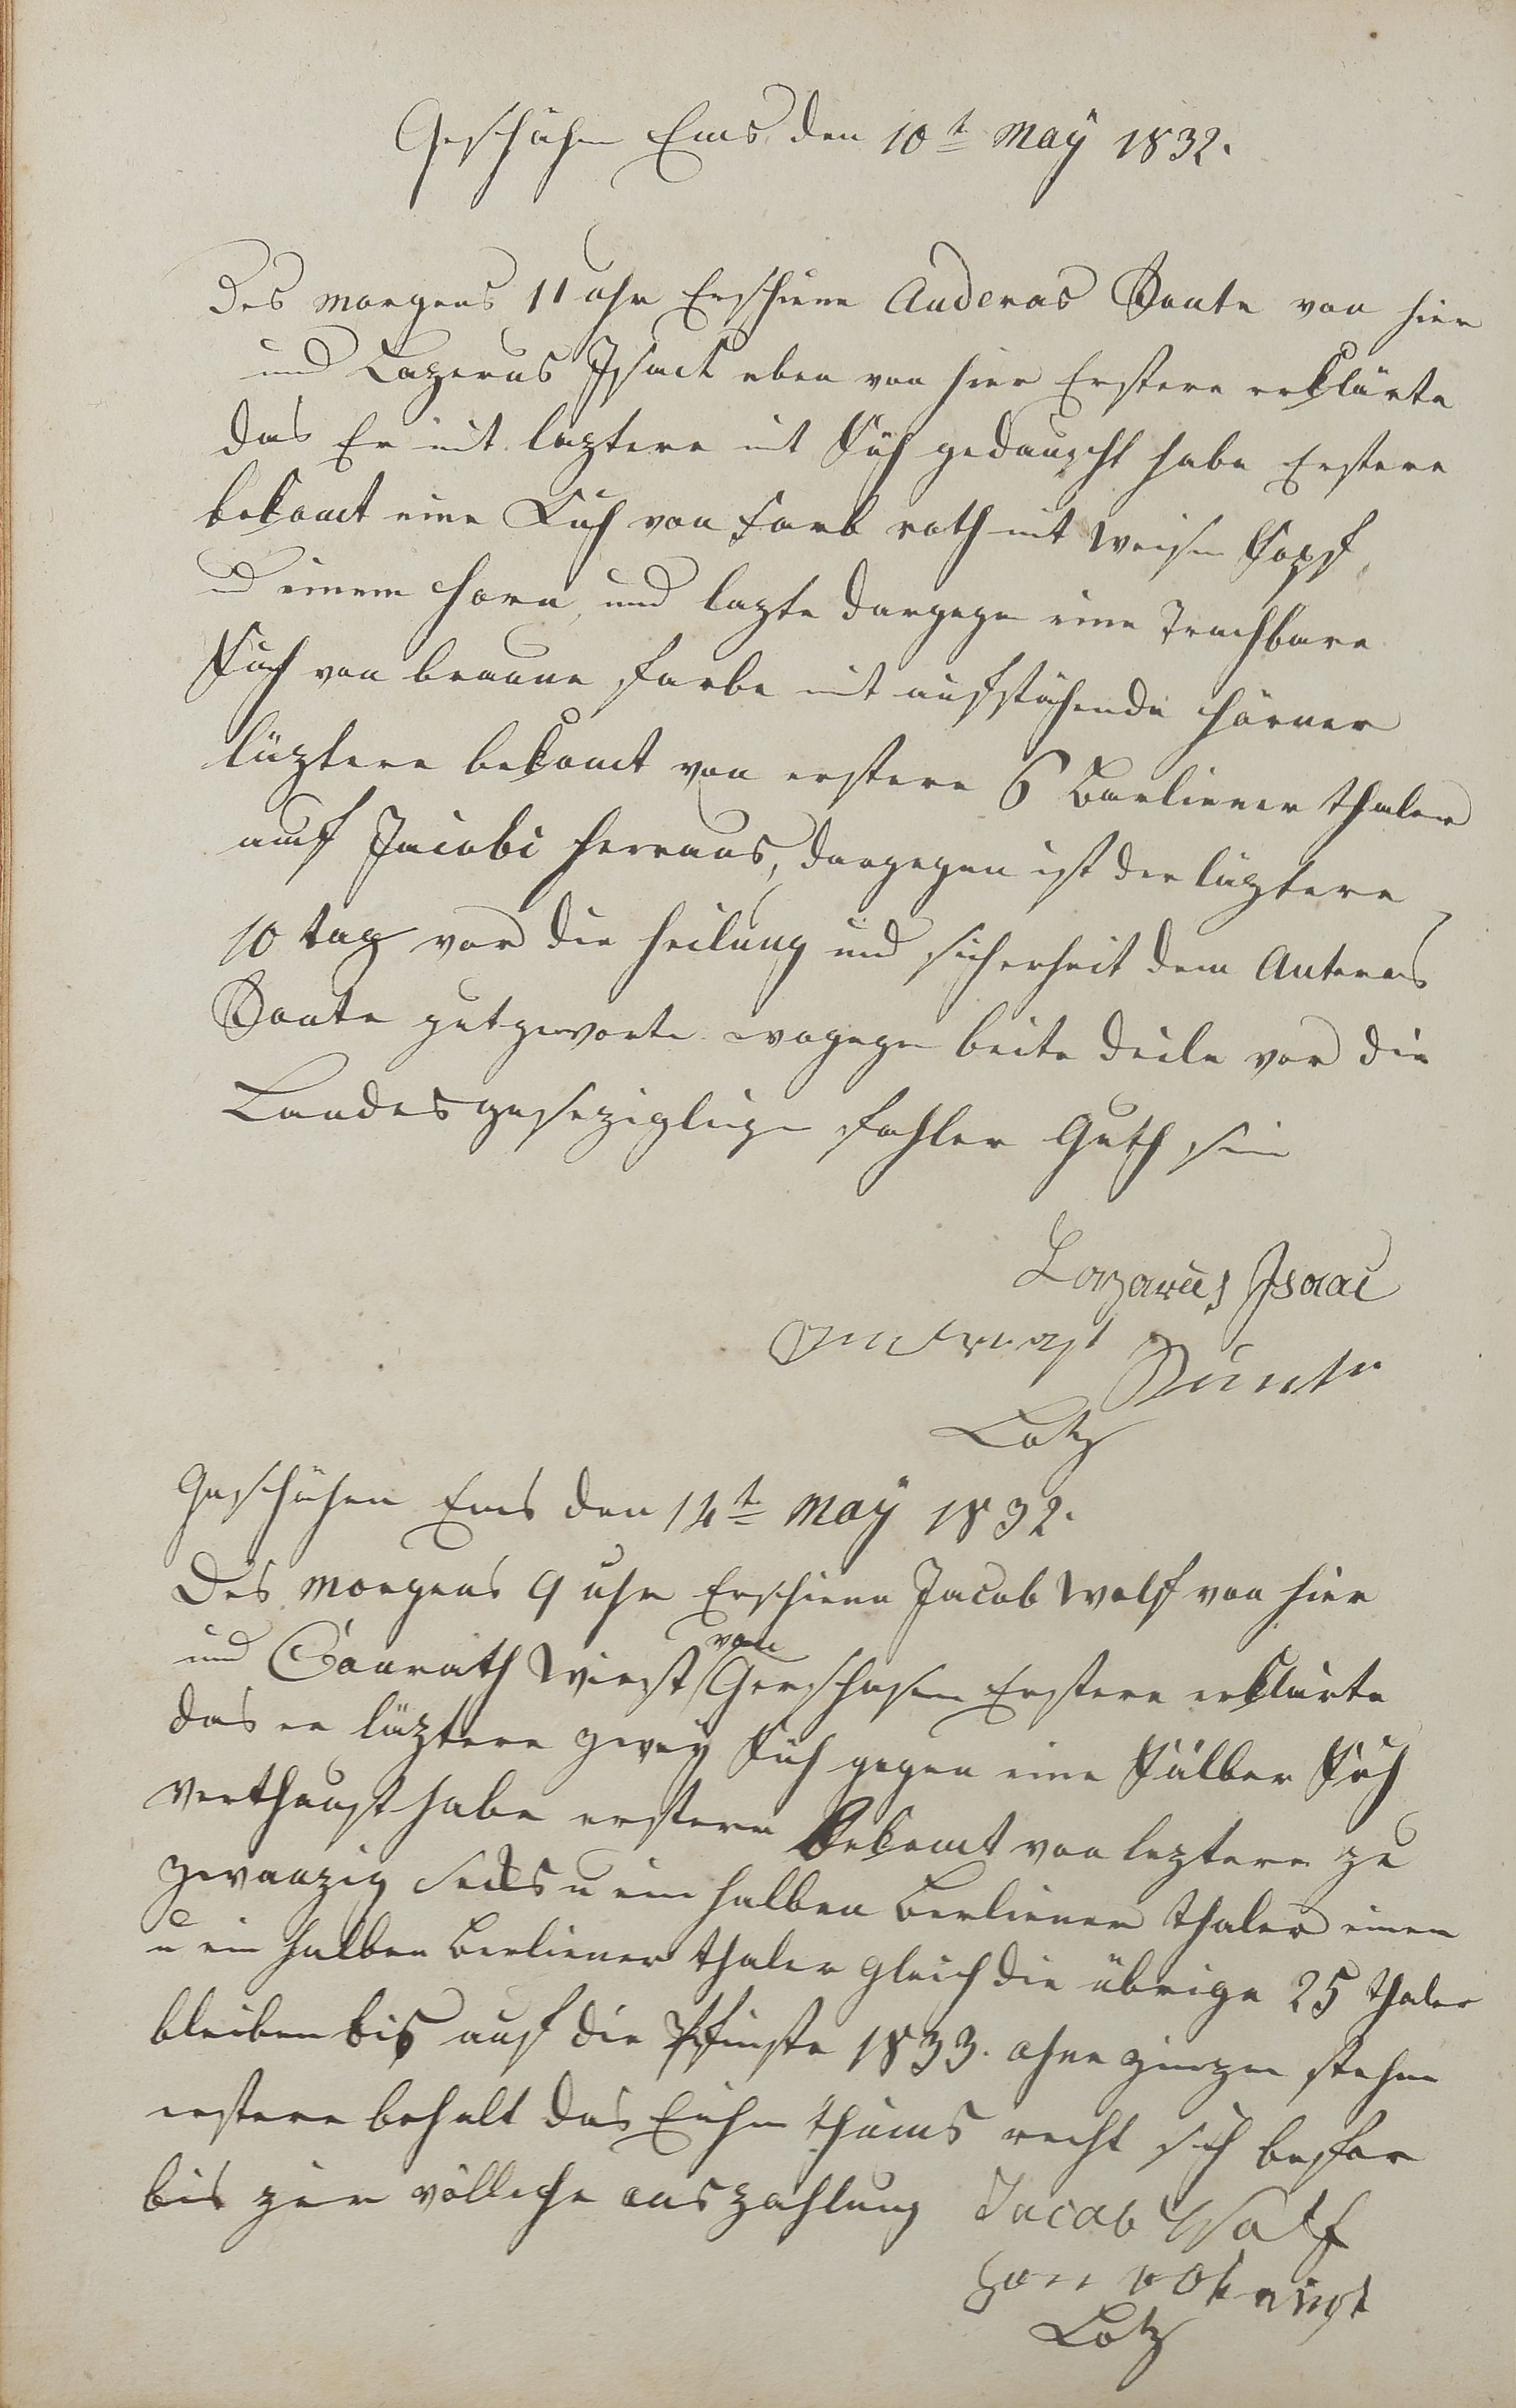 Geschähen Ems den 10t May 1832.
Des morgens 11 uhr Erschiene Anderas Bonte von hier
und Lazerus Isack eben von hier Erstere erklärte
das Er mit leztere mit Küh gedauscht habe Erstere
bekomt eine Kuh von Farb roth mit weisen Kopf
u einem Horn, und lezte dargegen eine Trachbare
Kuh von braune farbe mit aufstähende Hörner
läztere bekomt von erstere 6 Berliener thaler
auf Jacobi herraus, dargegen ist der läztere
10 tag vor die heilung und sicherheit dem Anteras
Bonte gutgeworte wogegen beite deile vor die
Landesgesezigligen fehler Guth sin
Lazarus Isaac
Anderast
Bunte
Lotz
Geschähen Ems den 14t May 1832.
Des morgens 9 uhr Erschiene Jacob Wolf von hier
und Conrath Wirst von Gershasen Erstere erklärte
das er läztere zwey Küh gegen eine Kälber Küh
verthaust habe erstere Bekomt von leztere zu
zwanzig sechs u ein halben Berliener thaler einen
u ein halben Berliener thaler gleich die übrige 25 thaler
bleiben bis auf die Pfinste 1833. ohne zinzen stehen
erstere behalt das Eichen thums recht sich befor
bis zur völliche auszahlung Jacob Wolf
Lotz